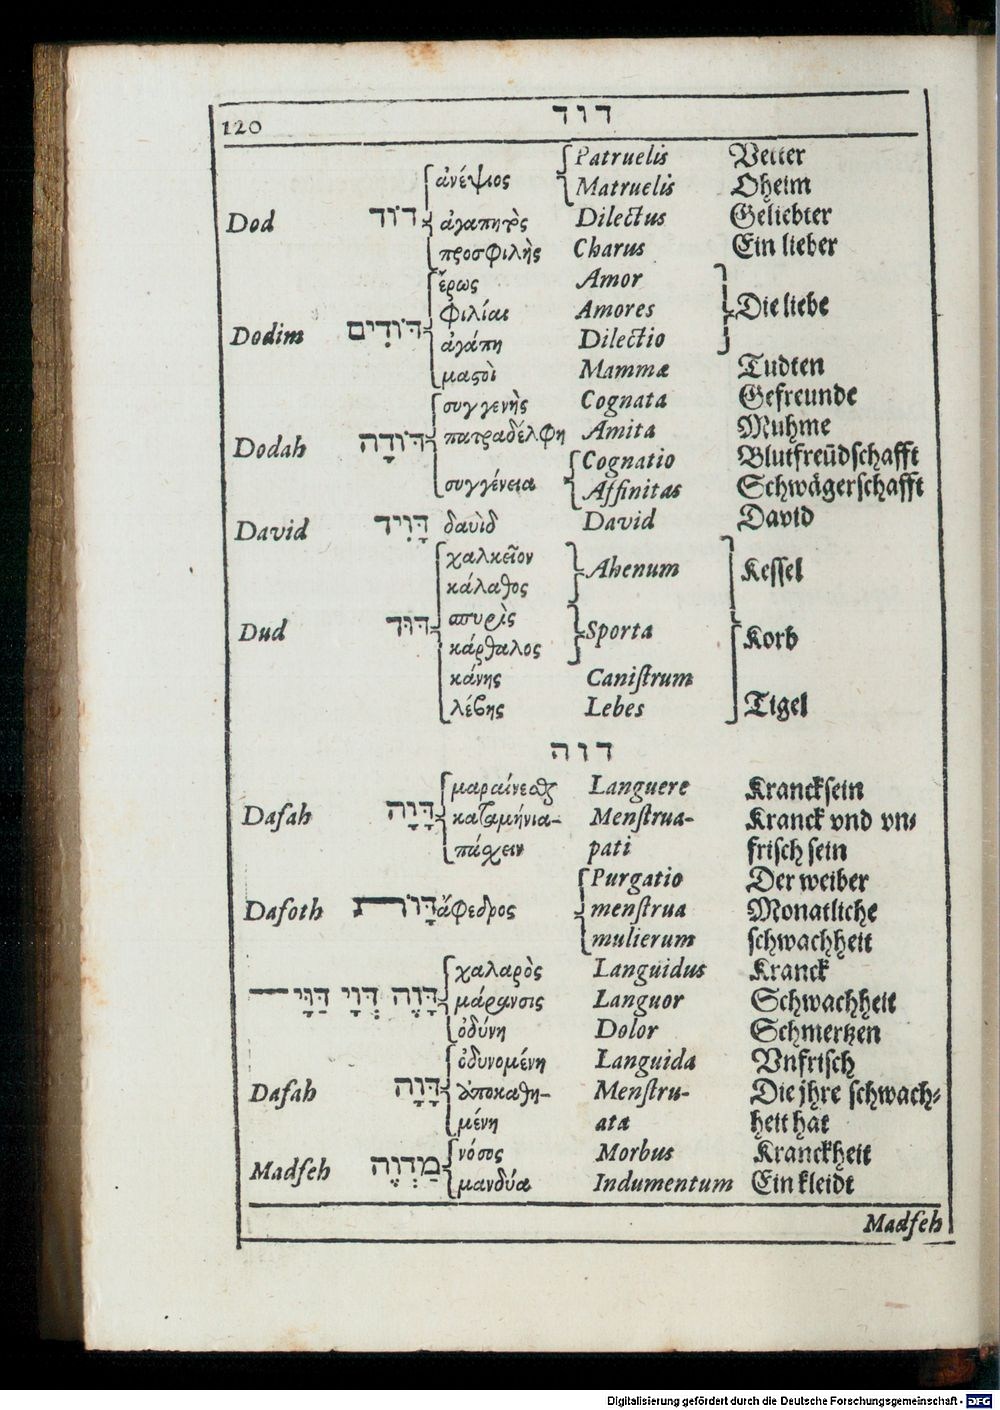 120 דוד
Patruelis Vetter
ἀνέψιος Matruelis Oheim
Dod דּוֹד ἀγαπητὸς Dilectus Geliebter
προσφιλὴς Charus Ein lieber
ἔρως Amor
φιλίαι Amores Die liebe
Dodim דּוֹדִים ἀγάπη Dilectio
μαστοὶ Mammæ Tudten
συγγενὴς Cognata Gefreunde
Dodah דּוֹדָה πατραδέλφη Amita Muhme
Cognatio Blutfreūdschafft
συγγένεια Affinitas Schwägerschafft
David דָּוִיד δαυὶδ David David
χαλκεῖον Ahenum Kessel
κάλαθος
Dud דּוּד σπυρὶς Sporta Korb
κάρθαλος
κάνης Canistrum
λέβης Lebes Tigel
דוה
μαραίνεσθαι Languere Kranck sein
Dafah דָּוָה καταμήνια- Menstrua- Kranck vnd vn-
πάσχειν pati frisch sein
Purgatio Der weiber
Dafoth דָּוֹת ἄφεδρος menstrua Monatliche
mulierum schwachheit
χαλαρὸς Languidus Kranck
דָּוֶה דְּוָי דַּוָּי μάρανσις Languor Schwachheit
ὀδύνη Dolor Schmertzen
ὀδυνομένη Languida Vnfrisch
Dafah דָּוָה ἀποκαθη- Menstru- Die jhre schwach-
μένη ata heit hat
νόσος Morbus Kranckheit
Madfeh מַדְוֶה μανδύα Indumentum Ein kleidt
Madfeh
Digitalisierung gefördert durch die Deutsche Forschungsgemeinschaft - DFG